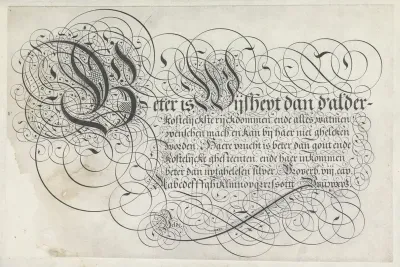 Beter is Wijsheyt dan d'alder-
kostelijckste rijckdommen, ende alles watmen
wenschen mach en kan bij haer niet gheleken
worden. Haere vrucht is beter dan gout ende
kostelijcke ghesteenten, ende haer inkommen
beter dan uytghelesen silver. Proverb. viij. cap.